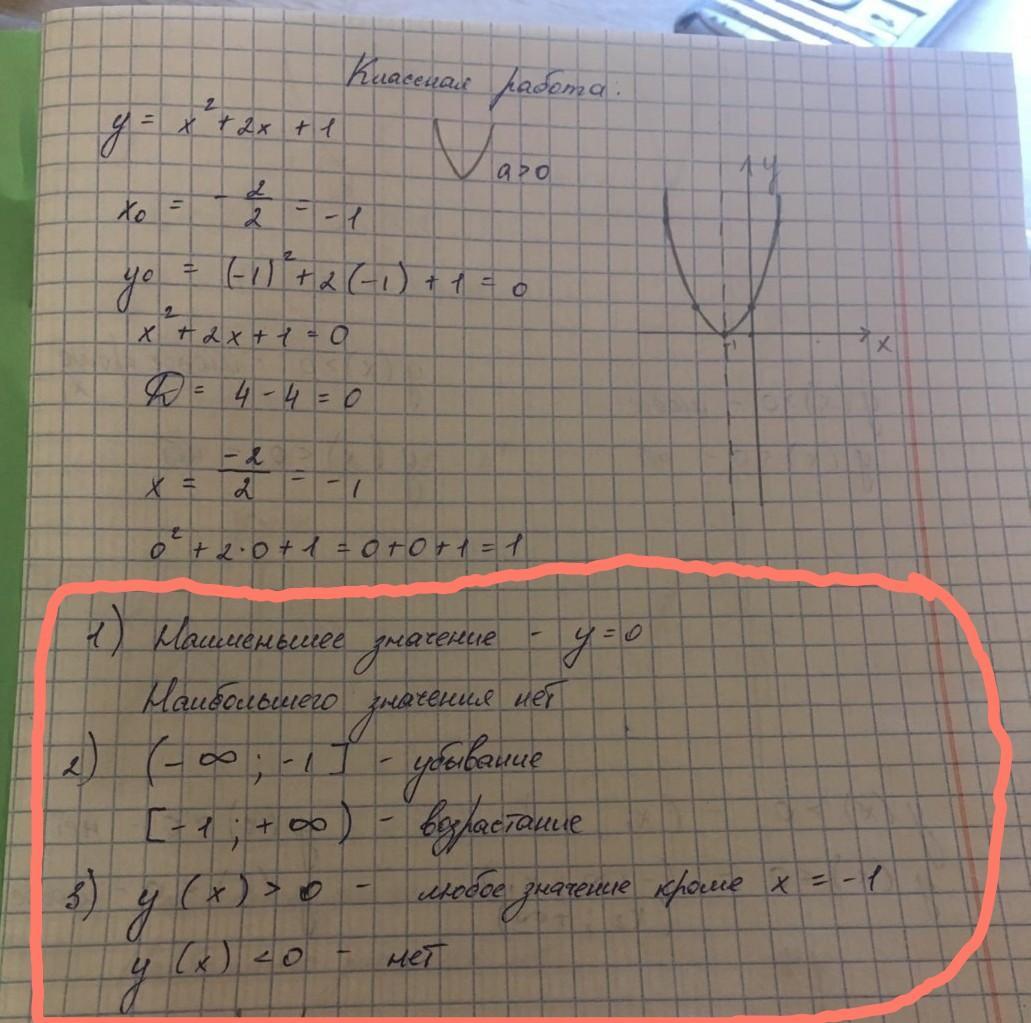 Классная работа:
y = x² + 2x + 1
a>0
x₀ = - 2/2 = -1
y₀ = (-1)² + 2(-1) + 1 = 0
x² + 2x + 1 = 0
D = 4 - 4 = 0
x = -2/2 = -1
0² + 2·0 + 1 = 0+0+1 = 1
y
x
1) Наименьшее значение - y=0
Наибольшего значения нет
2) (-∞; -1] - убывание
[-1; +∞) - возрастание
3) y(x) > 0 - любое значение кроме x = -1
y(x) < 0 - нет